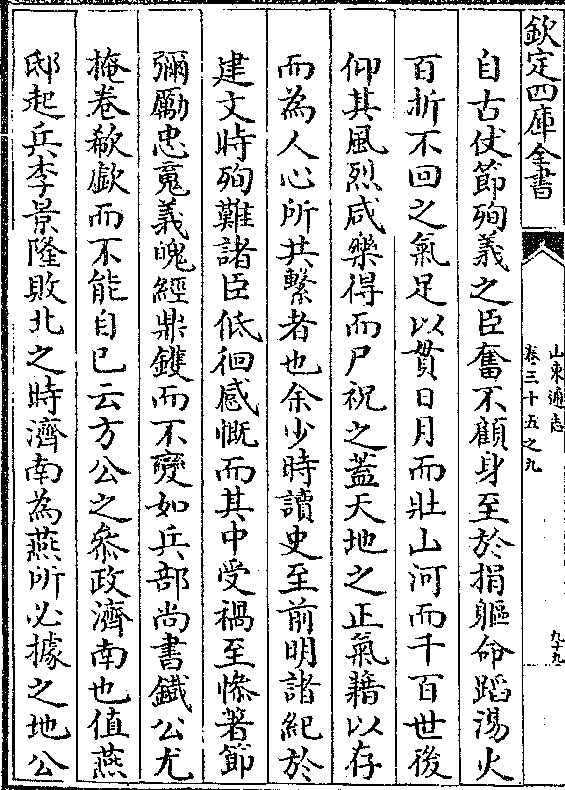 欽定四庫全書
山東通志
卷三十五之九
九十九
自古仗節殉義之臣奮不顧身至於捐軀命蹈湯火
百折不回之氣足以貫日月而壯山河而千百世後
仰其風烈咸樂得而尸祝之蓋天地之正氣藉以存
而為人心所共繫者也余少時讀史至前明諸紀於
建文時殉難諸臣低徊感慨而其中受禍至慘著節
彌勵忠䰟義魄經鼎鑊而不變如兵部尚書鐵公尤
掩卷欷歔而不能自已云方公之叅政濟南也值燕
邸起兵李景隆敗北之時濟南為燕所必據之地公